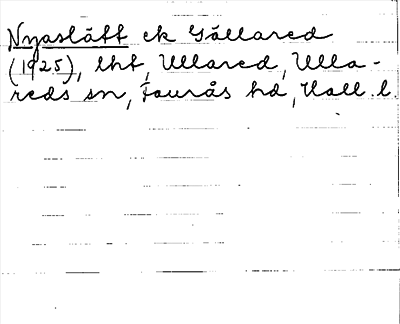 Nyaslätt ek Gällared
(1925), lht, Ullared, Ulla-
reds sn, Faurås hd, Hall. l.